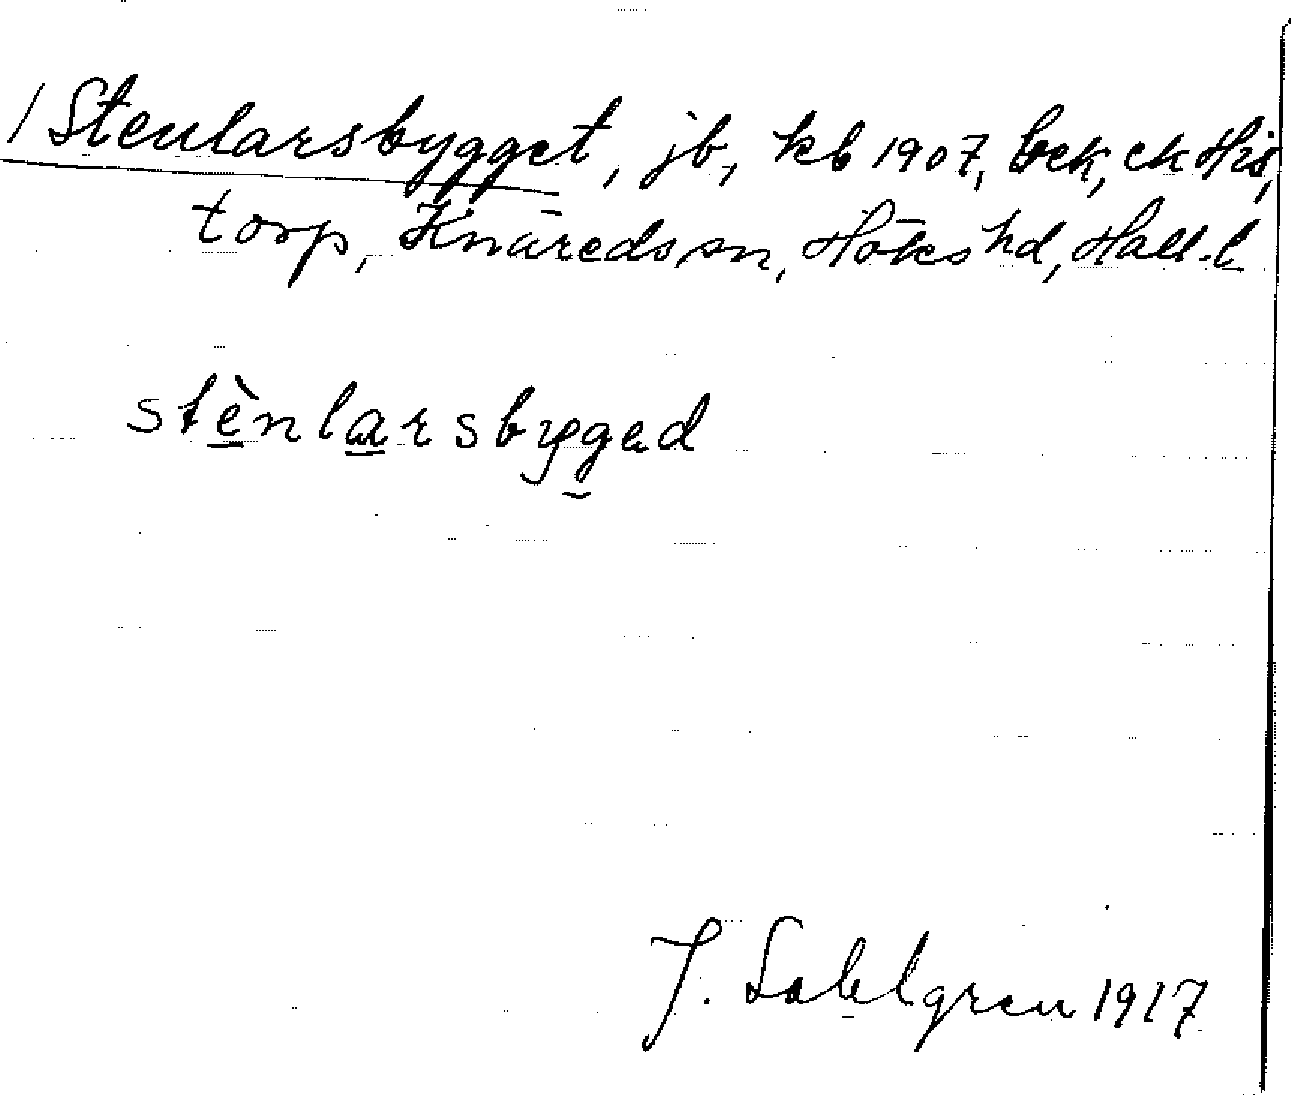 / Stenlarsbygget, jb, kb 1907, bck, ck His,
torp, Knäreds sn, Höks hd, Hall. l
stènlarsbygad
J. Sahlgren 1917